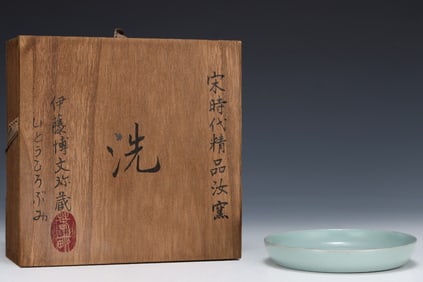 宋時代精品汝窯
洗
伊藤博文珍藏
いとうひろぶみ